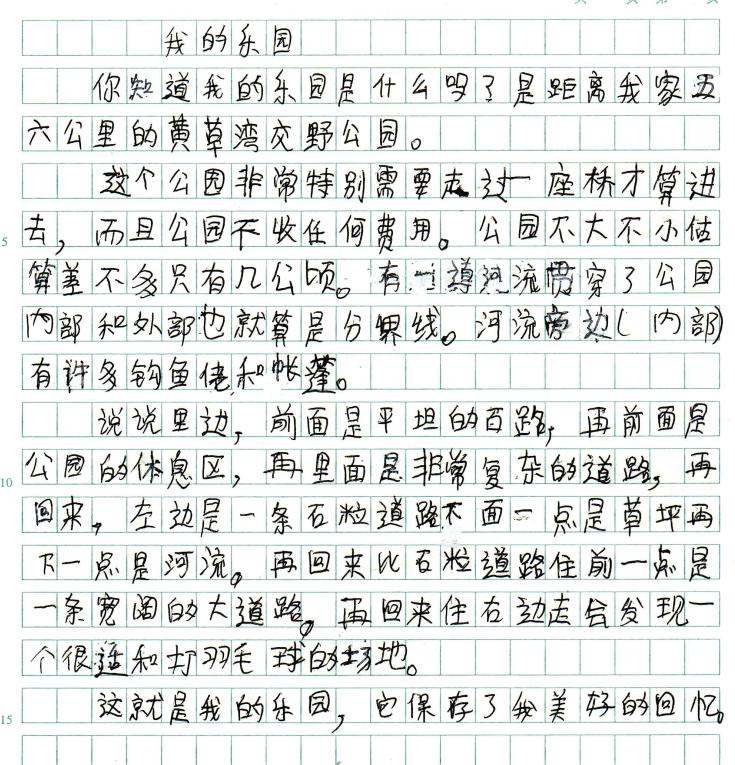 我的乐园
你知道我的乐园是什么吗了是距离我家五
六公里的黄草湾交野公园。
这个公园非常特别需要走过一座桥才算进
去，而且公园不收任何费用。公园不大不小估
算差不多只有几公顷。有一道河流贯穿了公园
内部和外部也就算是分界线。河流旁边(内部)
有许多钩鱼佬和帐蓬。
说说里边，前面是平坦的百路，再前面是
公园的休息区，再里面是非常复杂的道路，再
回来，左边是一条石粒道路下面一点是草坪再
下一点是河流。再回来比石粒道路往前一点是
一条宽阔的大道路。再回来往右边走会发现一
个很适和打羽毛球的场地。
这就是我的乐园，它保存了我美好的回忆。
5
10
15